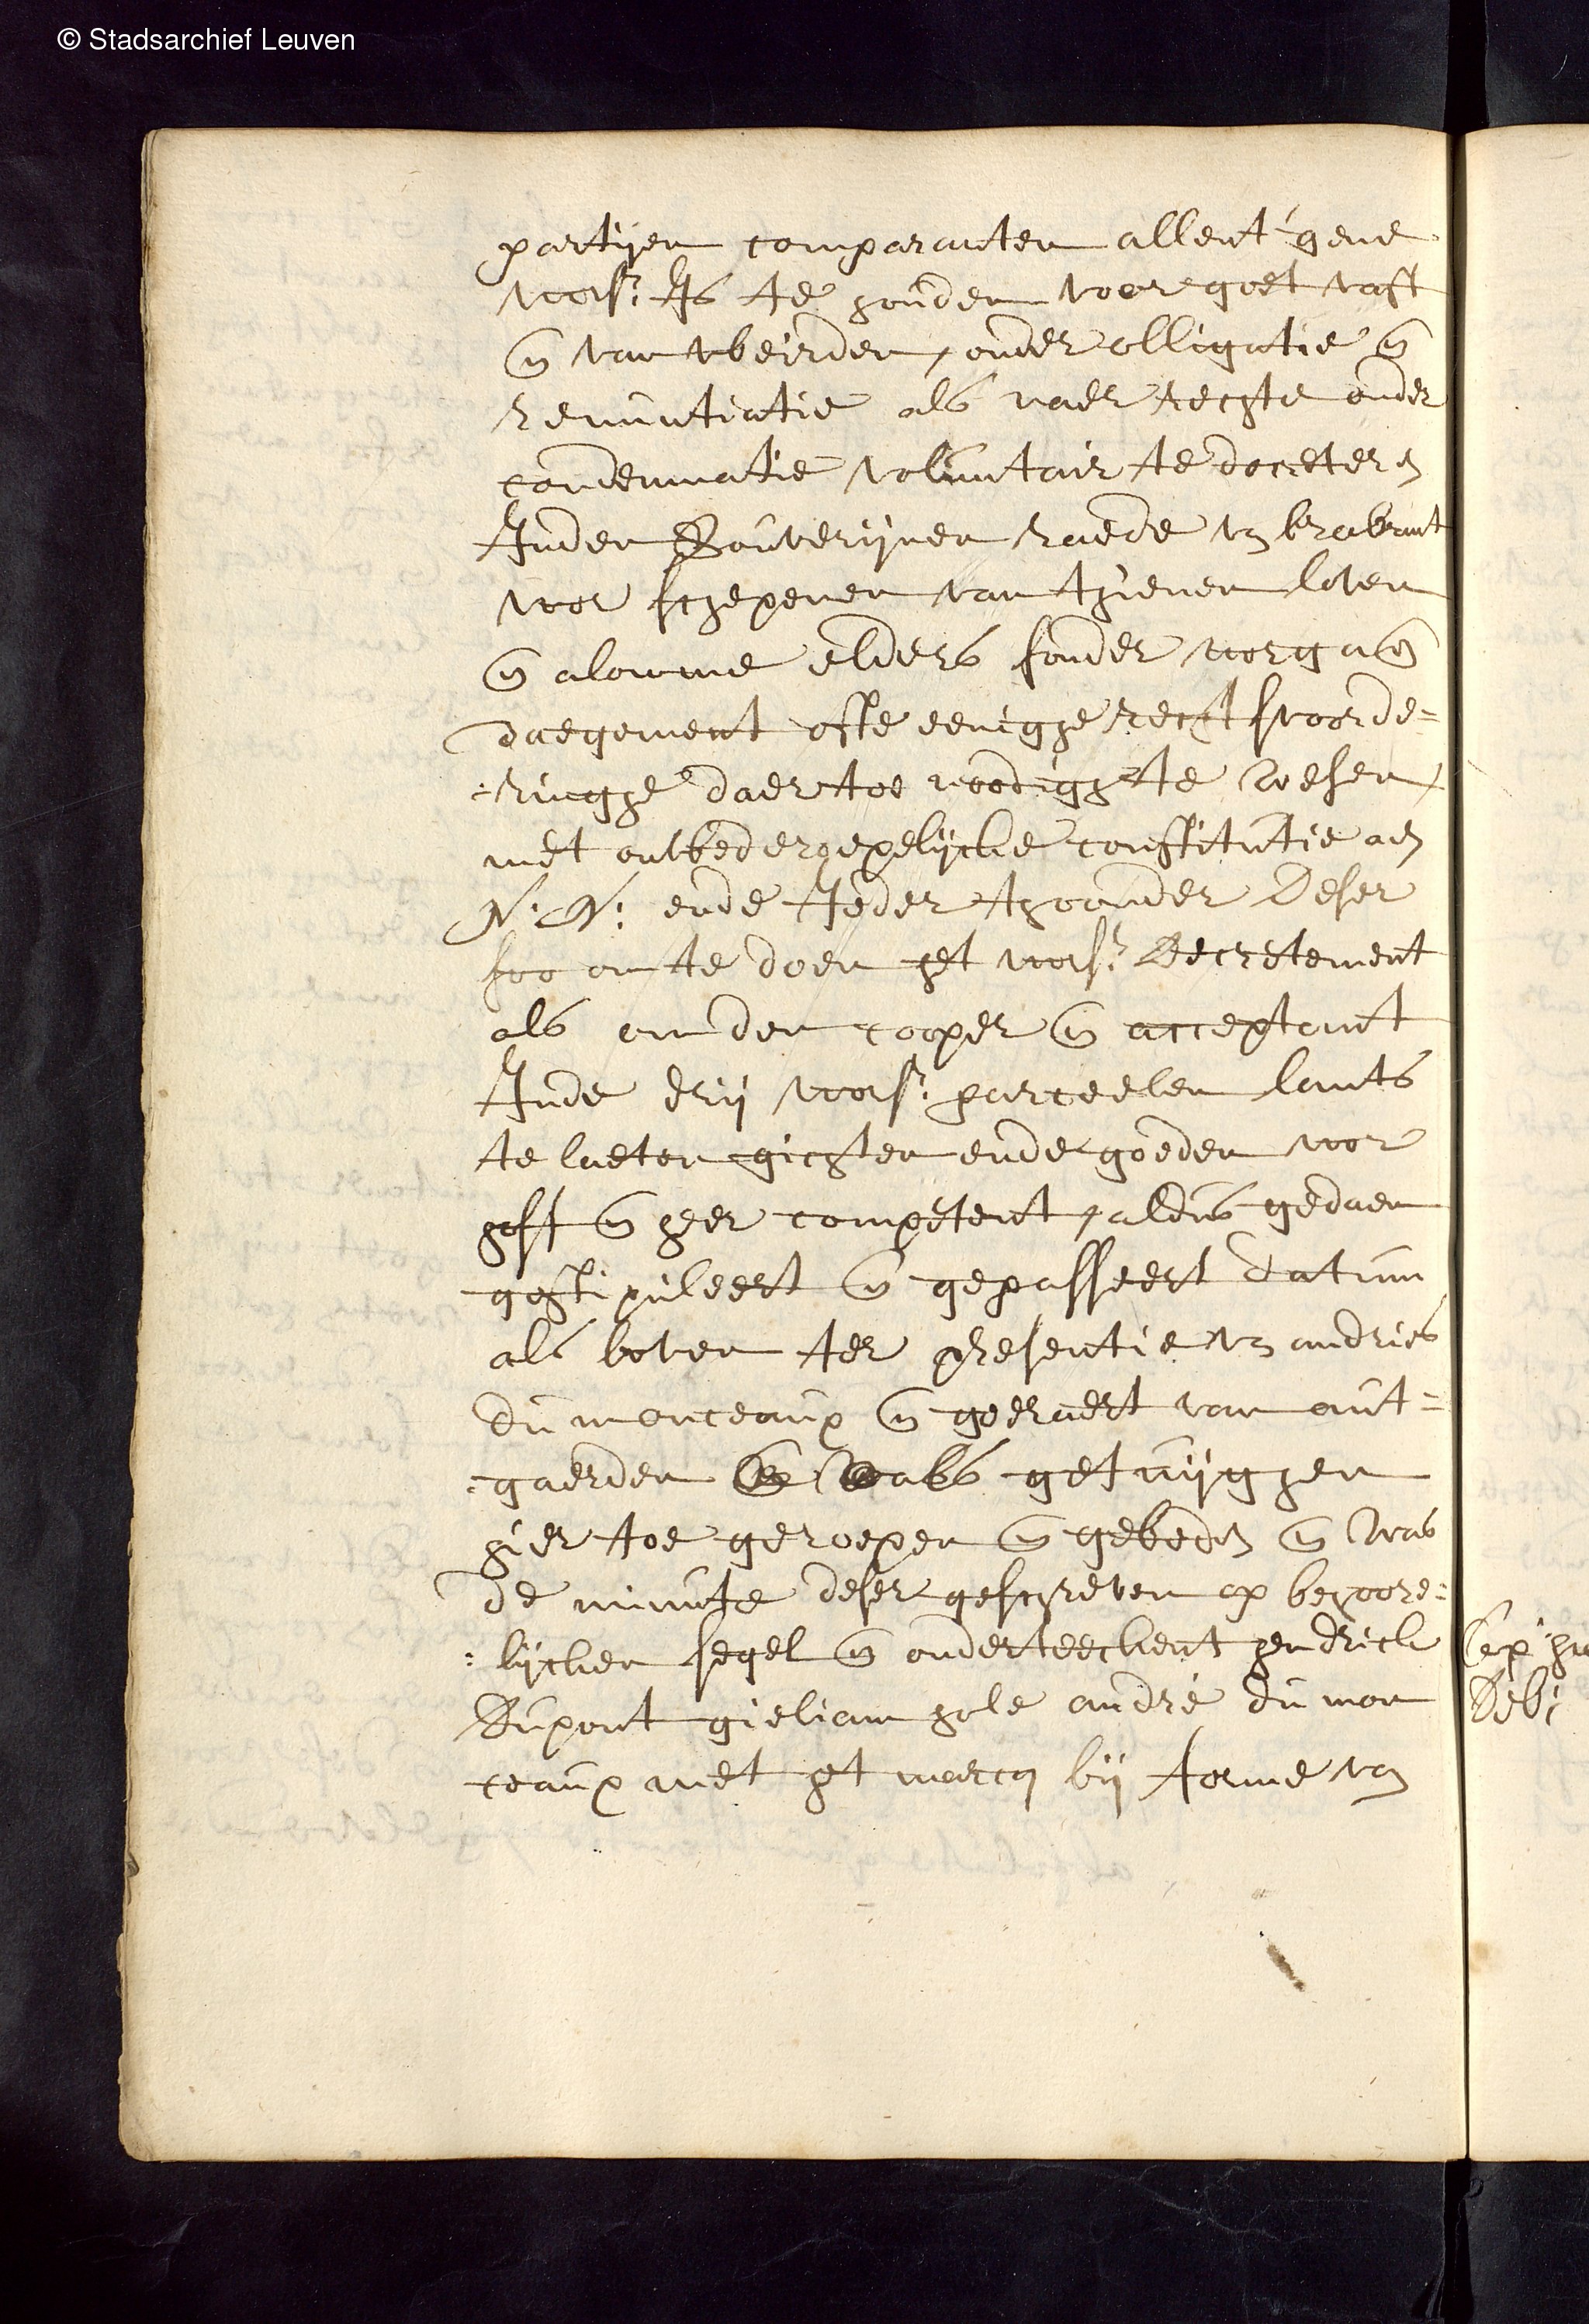 © Stadsarchief Leuven
partijen comparanten allent' gene
voors: Is te houden voor goet vast
en van weirden, onder obligatie en
renuntiatie als naer rechte onder
condemnatie voluntair te decreteren
Inden Souverijnen raede van brabant
voor schepenen van thienen loven
en alomme elders sonder voorgaen
daegement ofte eenighe rechtsvoorde=
=ringhe daer toe noodigh te wesen,
met onwederoepelijcke constitutie aen
N: N: ende Ieder thoonder deser
soo om te doen het voors: Decretement
als om den cooper en acceptant
Inde drij voors: parceelen lants
te laeten gichten ende goeden voor
hoff en heer competent, aldus gedaen
gestipuleert en gepasseert datum
als boven ter presentie van andries
du monceaux en geeraert van out=
=gaerden als getuijghen
hier toe geroepen en gebeden en was
de minute deser geschreven op behoore=
=lijcken segel en onderteeckent hendrick
Dupont gieliam hole andré du mon
ceaux met het marcq bij forme van